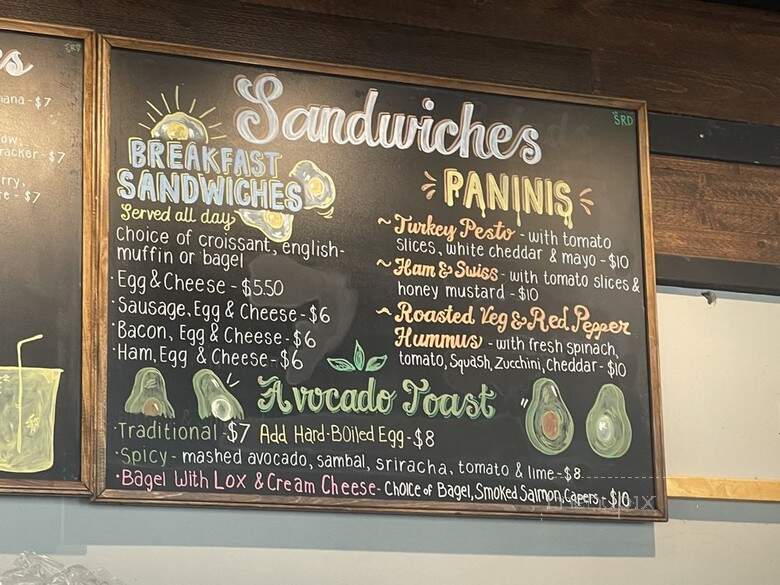 s
ana - $7
ow,
racker - $7
rry,
e - $7
SRD
Sandwiches
SRD
BREAKFAST
SANDWICHES
Served all day
Choice of croissant, english-
muffin or bagel
· Egg & Cheese - $5.50
· Sausage, Egg & Cheese - $6
· Bacon, Egg & Cheese - $6
· Ham, Egg & Cheese - $6
PANINIS
~ Turkey Pesto - with tomato
slices, white cheddar & mayo - $10
~ Ham & Swiss - with tomato slices &
honey mustard - $10
~ Roasted Veg & Red Pepper
Hummus - with fresh spinach,
tomato, Squash, Zucchini, Cheddar - $10
Avocado Toast
· Traditional - $7 Add Hard-Boiled Egg - $8
· Spicy - mashed avocado, sambal, sriracha, tomato & lime - $8
· Bagel With Lox & Cream Cheese - Choice of Bagel, Smoked Salmon, Capers - $10